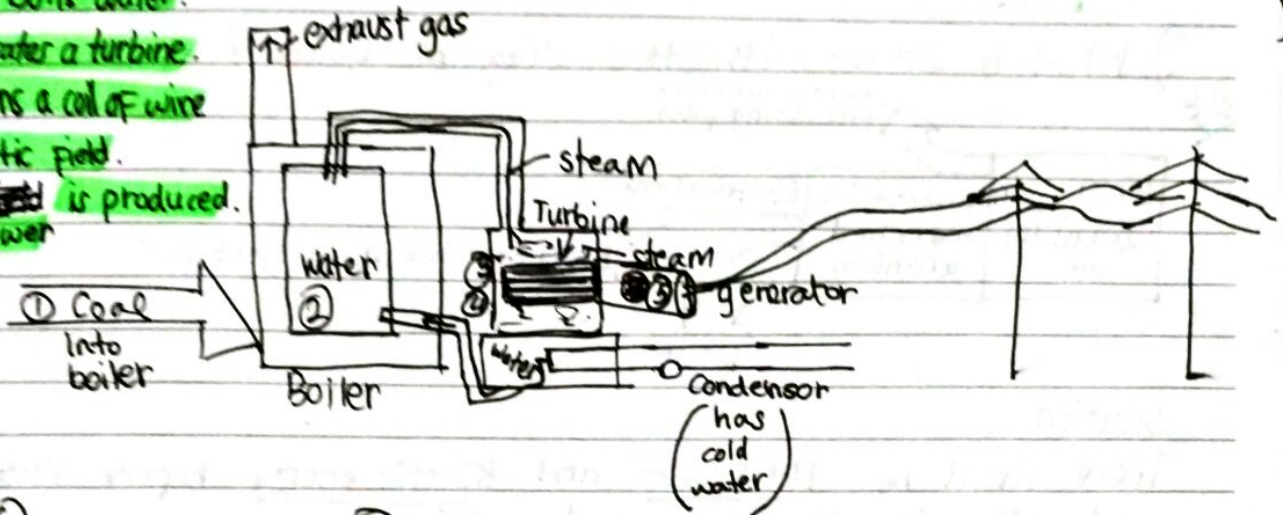 water.
a turbine.
ns a coil of wire
tic field.
is produced.
exhaust gas
steam
Turbine
steam
generator
water
②
③
④
⑤
① Coal
Into
boiler
Boiler
water
Condensor
(has
cold
water)